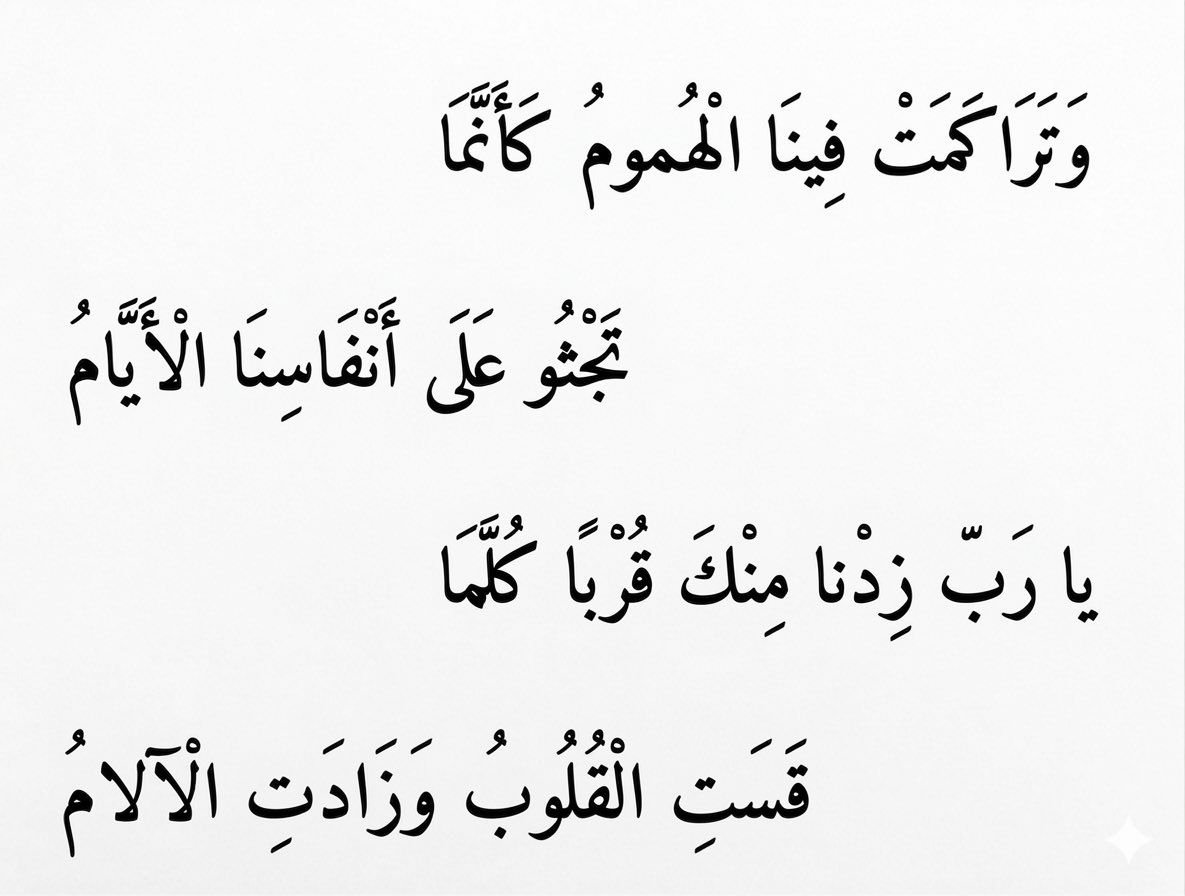 وَتَرَاكَمَتْ فِينَا الْهُمومُ كَأَنَّمَا
تَجْثُو عَلَى أَنْفَاسِنَا الْأَيَّامُ
يا رَبّ زِدْنا مِنْكَ قُرْبًا كُلَّمَا
قَسَتِ الْقُلُوبُ وَزَادَتِ الْآلامُ